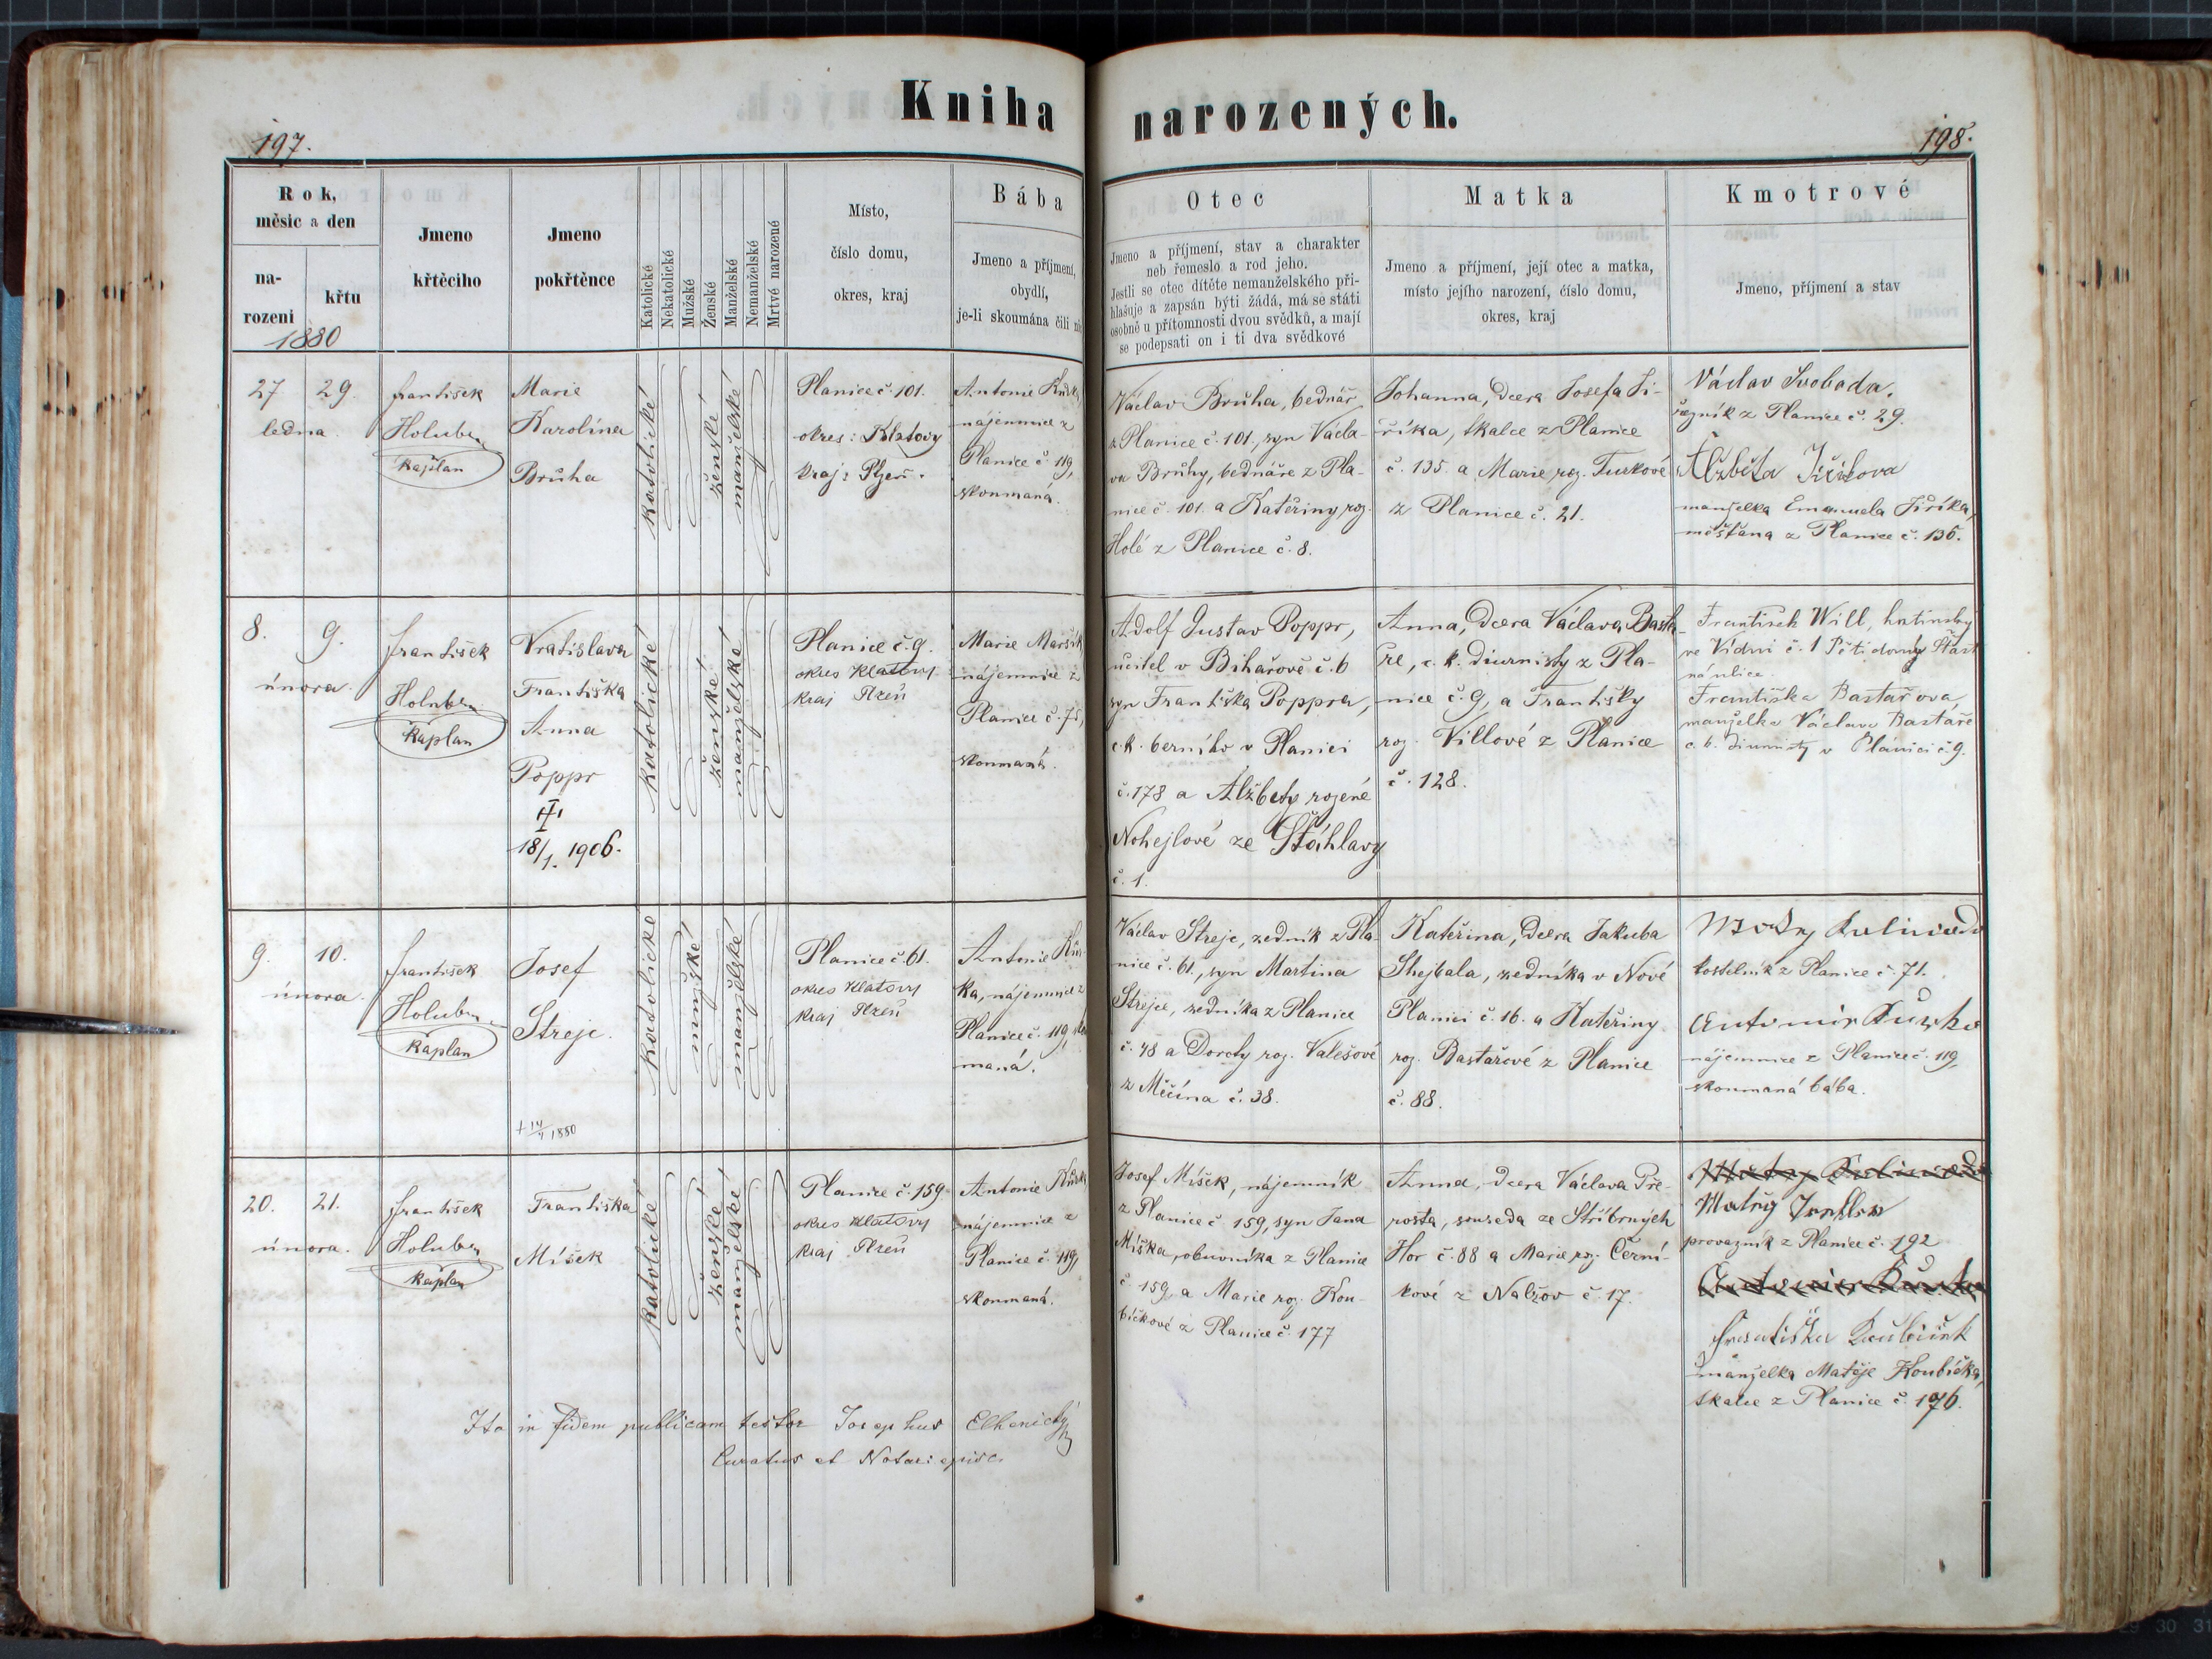 Kniha narozených.
197.
198.
Rok,
měsíc a den
na-
rozeni
křtu
1880
Jmeno
křtěcího
Jmeno
pokřtěnce
Katolické
Nekatolické
Mužské
Ženské
Manželské
Nemanželské
Mrtvé narozené
Místo,
číslo domu,
okres, kraj
Bába
Jmeno a příjmení,
obydlí,
je-li skoumána čili
Otec
Jmeno a příjmení, stav a charakter
neb řemeslo a rod jeho.
Jestli se otec dítěte nemanželského při-
hlašuje a zapsán býti žádá, má se státi
osobně u přítomnosti dvou svědků, a mají
se podepsati on i ti dva svědkové
Matka
Jmeno a příjmení, její otec a matka,
místo jejího narození, číslo domu,
okres, kraj
Kmotrové
Jmeno, příjmení a stav
27 29.
ledna
František
Holub
kaplan
Marie
Karolina
Brůha
katolické
ženské
manželské
Planice č. 101.
okres: Klatovy
kraj: Plzeň.
Antonie
nájemnice z
Planice č. 119,
skoumaná.
Václav Brůha, bednář
z Planice č. 101., syn Václa-
va Brůhy, bednáře z Pla-
nice č. 101. a Kateřiny roz.
Holé z Planice č. 8.
Johanna, dcera Josefa Ji-
říka, tkalce z Planice
č. 135. a Marie roz. Turkové
z Planice č. 21.
Václav Svoboda,
řezník z Planice č. 29.
Alžběta Jiříkova
manželka Emanuela Jiříka,
měšťana z Planice č. 136.
8. 9.
února.
František
Holub
kaplan
Vratislava
Františka
Anna
Poppr
18/1. 1906.
katolické
ženské
manželské
Planice č. 9.
okres Klatovy
kraj Plzeň
Marie
nájemnice z
Planice č. 75,
skoumaná.
Adolf Gustav Poppr,
učitel v Bihařově č. 6
syn Františka Poppra,
c. k. berního v Planici
č. 178 a Alžbety rozené
Nohejlové ze Šťáhlavy
č. 1.
Anna, dcera Václava Basta-
ře, c. k. diurnisty z Pla-
nice č. 9, a Františky
roz. Villové z Planice
č. 128.
František Will,
ve Vídni č. 1
ná ulice.
Františka Bastařova,
manželka Václava Bastaře
c. k. diurnisty v Plánici č 9.
9. 10.
února.
František
Holub
kaplan
Josef
Strejc.
1880
katolické
mužské
manželské
Planice č. 61.
okres Klatovy
kraj Plzeň
Antonie
ka, nájemnice z
Planice č. 119,
maná.
Václav Strejc, zedník z Pla-
nice č. 61., syn Martina
Strejce, zedníka z Planice
č. 48 a Doroty roz. Valešové
z Měčína č. 38.
Kateřina, dcera Jakuba
Shejbala, zedníka v Nové
Planici č. 16. a Kateřiny
roz. Bastařové z Planice
č. 88.
kostelník z Planice č. 71.
nájemnice z Planice č. 119,
skoumaná bába.
20. 21.
února.
František
Holub
kaplan
Františka
Míšek
katolické
ženské
manželské
Planice č. 159
okres Klatovy
kraj Plzeň
Antonie
nájemnice z
Planice č. 119,
skoumaná.
Josef Míšek, nájemník
z Planice č 159, syn Jana
Míška, obuvníka z Planice
č. 159, a Marie roz. Kou-
bíčkové z Planice č. 177
Anna, dcera Václava Pře-
rosta, souseda ze Stříbrných
Hor č. 88 a Marie roz. Černí-
kové z Nalžov č. 17.
provazník z Planice č. 192
Františka
manželka Matěje Koubíčka,
tkalce z Planice č. 176.
Ita in fidem publicam testor Josephus Elhenický
Curatus et Notar: episc.